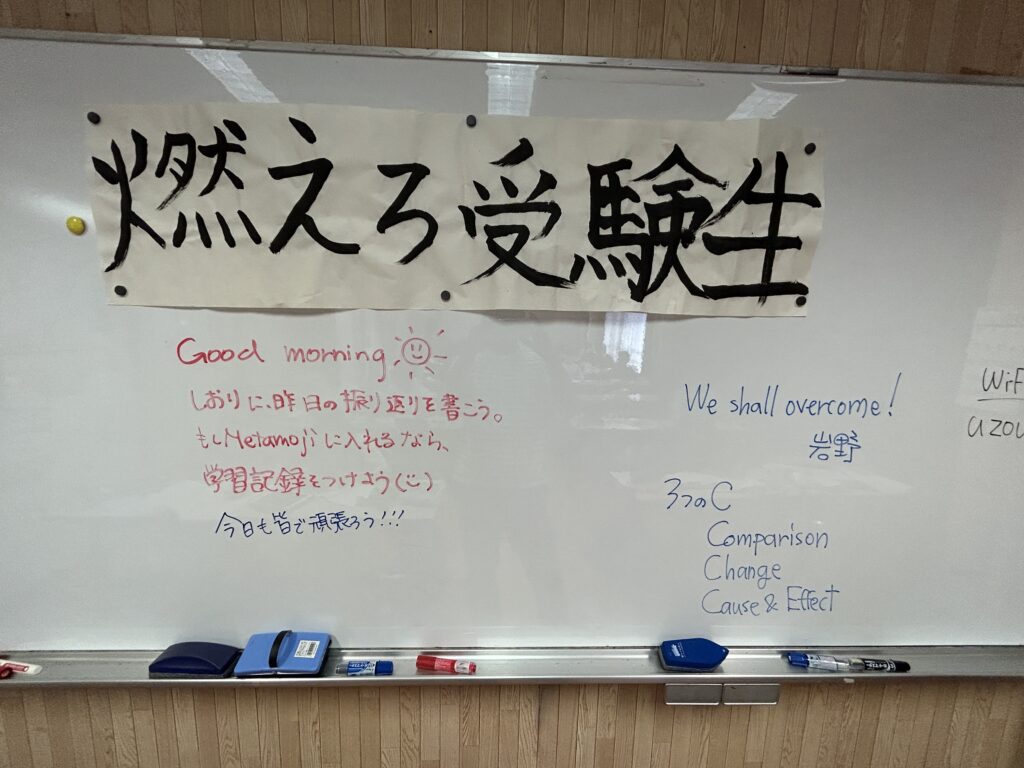 燃えろ受験生
Good morning
しおりに、昨日の振り返りを書こう。
もしMetamojiに入れるなら、
学習記録をつけよう(¨)
今日も皆で頑張ろう!!!
We shall overcome!
岩野
3つのC
Comparison
Change
Cause & Effect
WiF
azou